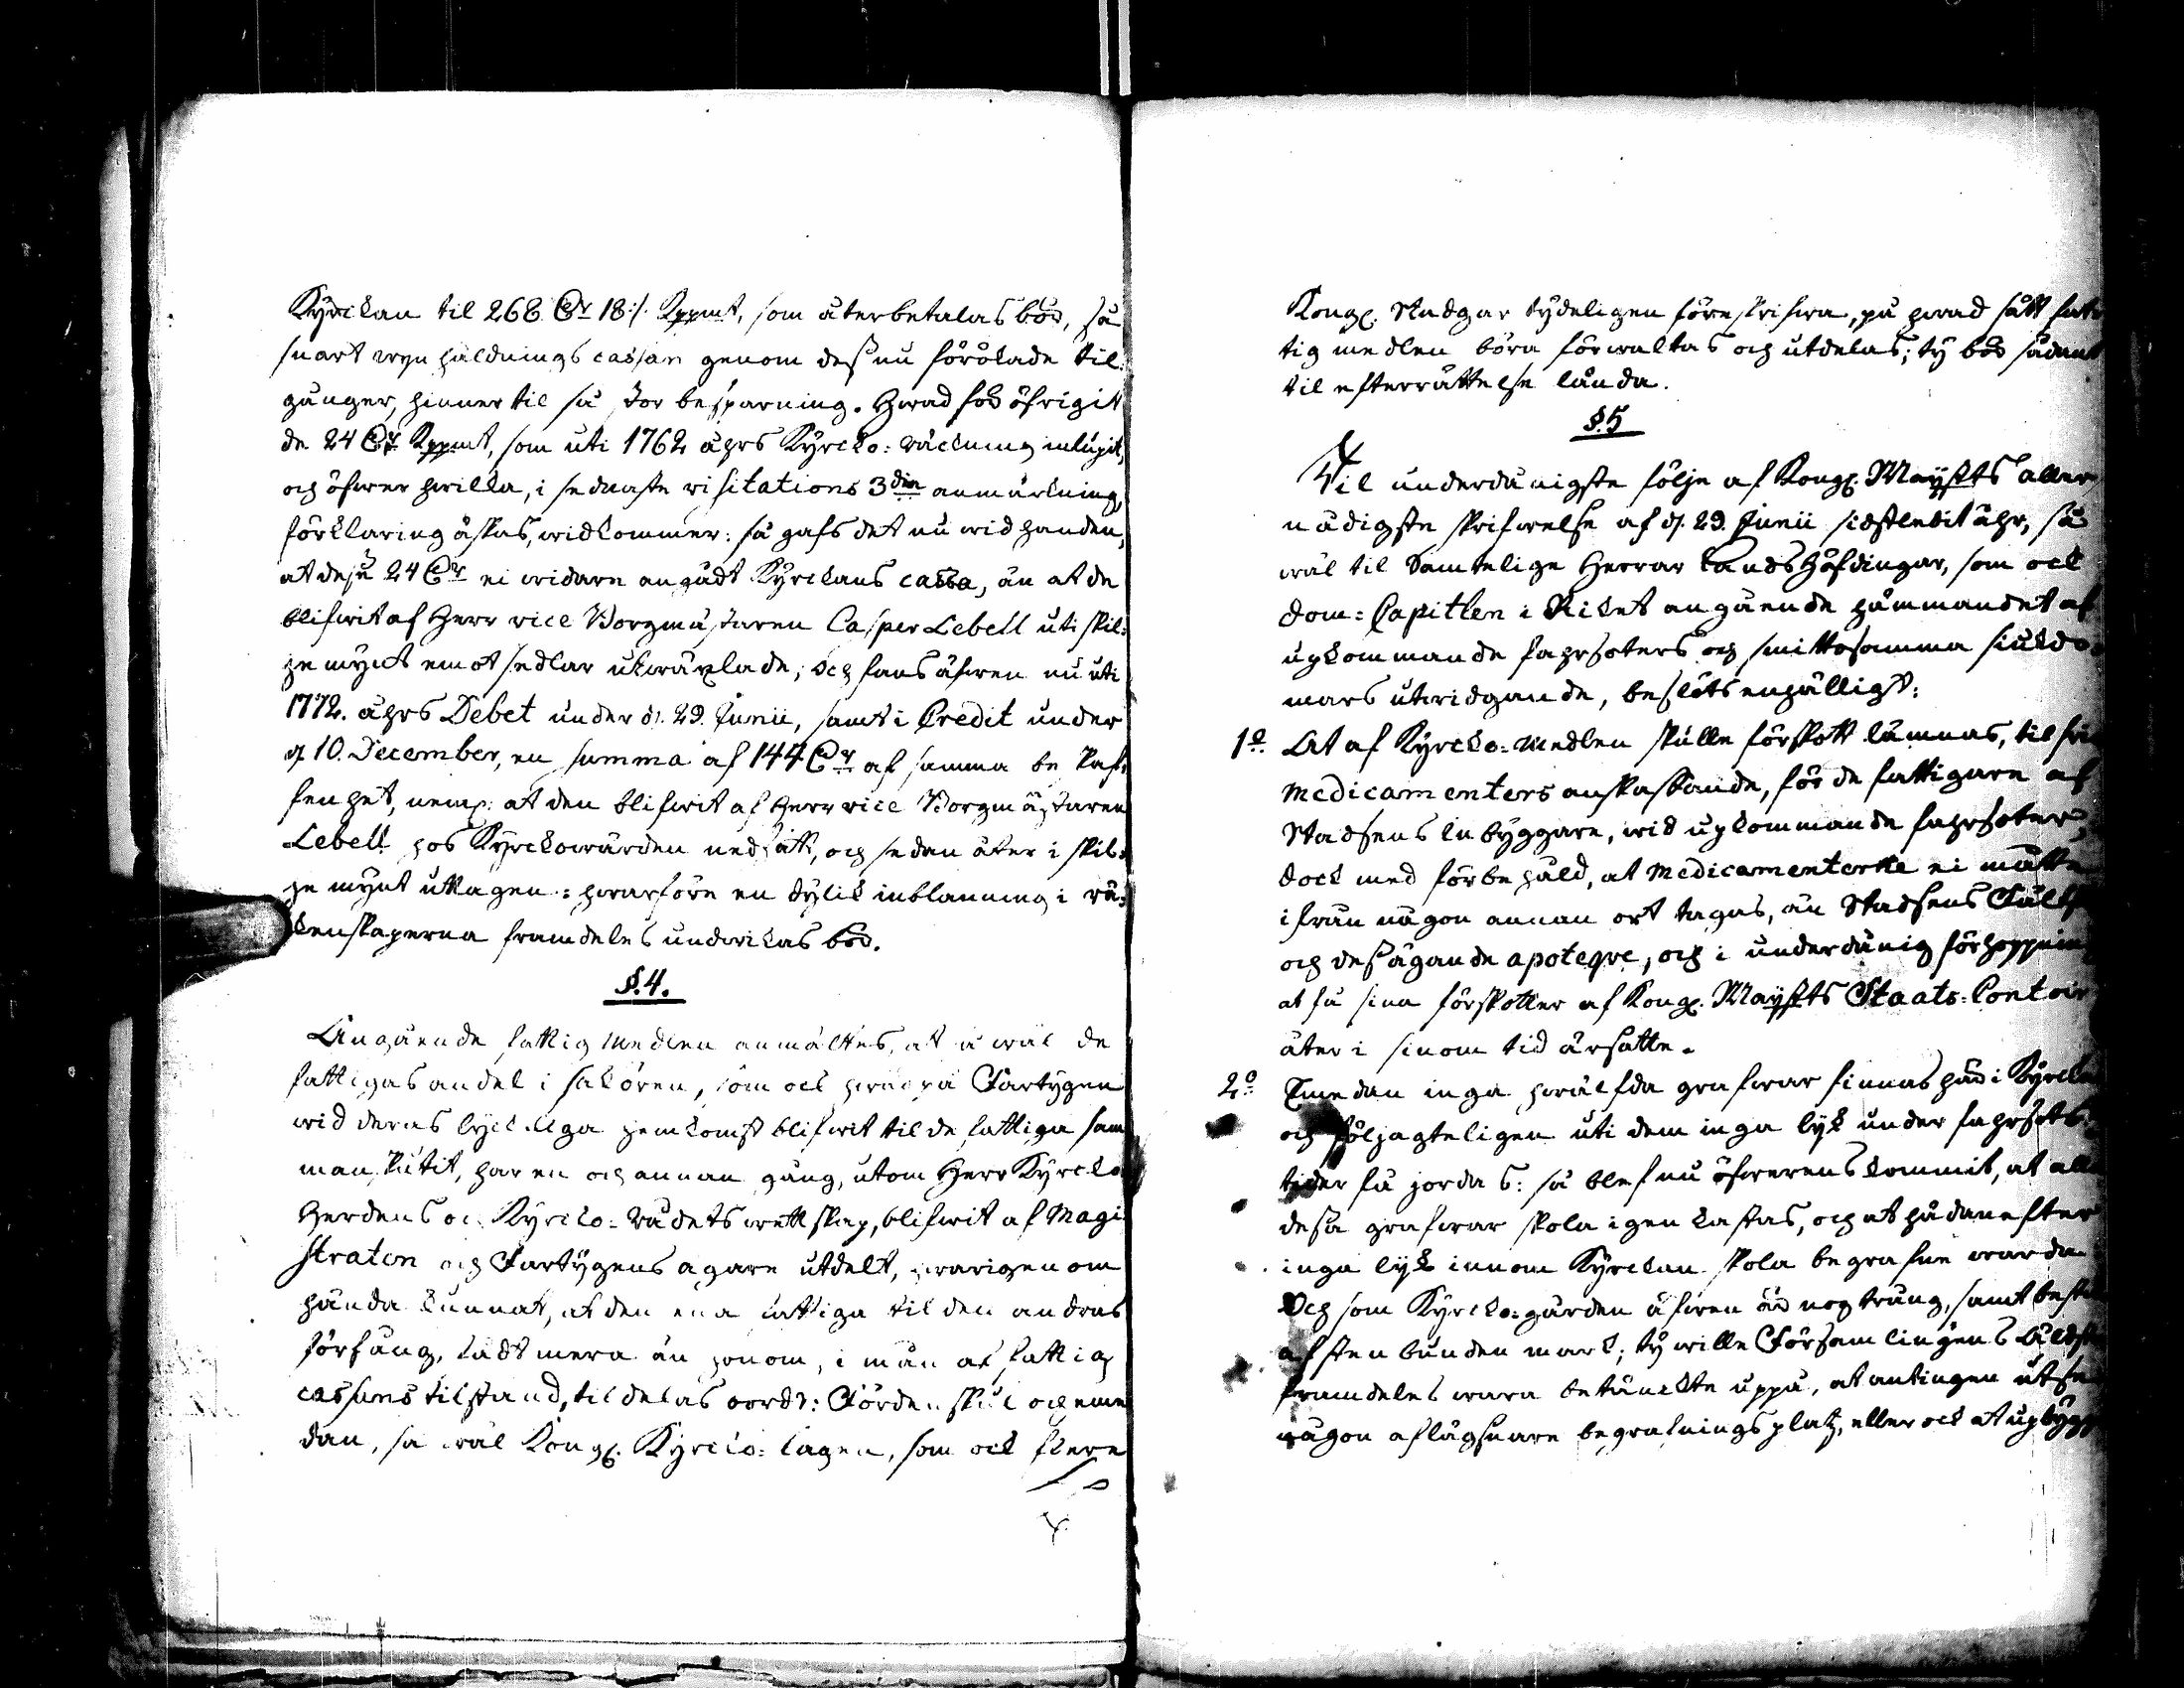 Kyrckan til 268 Dlr 18 :/. Kppmt, som återbetalas bör, så
snart underhåldnings cassan genom deß nu förökade til-
gånger, hinner til så stor besparning. Hwad för öfrigit
de 24 Dlr Kppmt, som uti 1762 åhrs Kyrcko-räckning inlupit,
och öfwer hwilka, i sednaste visitations 3die anmärckning,
förklaring äskas, widkommer: så gafs det nu wid handen,
at deße 24 Dlr ei widare angådt Kyrckans cassa, än at de
blifwit af Herr vice Borgmästaren Casper Lebell uti skil-
je mynt emot sedlar utwäxlade; och fans äfwen nu uti
1772. åhrs Debet under d. 29. Junii, samt i Credit under
d. 10. December, en summa af 144 Dlr af samma be skaf-
fenhet, neml: at den blifwit af Herr vice Borgmästaren
Lebell hos Kyrckowärden nedsatt, och sedan åter i skil-
je mynt uttagen: hwarföre en dylik inblanning i rä-
kenskaperna framdeles undwikas bör.
§. 4.
Angående fattig medlen anmältes, at så wäl de
fattigas andel i sakören, som ock hwad på Fartygen
wid deras lyckliga hemkomst blifwit til de fattiga sam
man skutit, har en och annan gång, utom Herr Kyrcko
Herdens och Kyrcko-Rådets wettskap, blifwit af Magi
straten och Fartygens ägare utdelt, hwarigenom
hända kunnat, at den ena fattiga til den andras
förfång, fådt mera än honom, i mån af fattig
cassans tilstånd, tildelas bordt: Fördenskul och eme
dan, så wäl Kongl. Kyrcko-lagen, som ock flere
Kongl. Stadgar tydeligen föreskrifwa, på hwad sätt fat
tig medlen böra förwaltas och utdelas; ty bör sådant
til efterrättelse lända.
§. 5
Til underdånigste följe af Kongl. Maysts aller
nådigste skrifwelse af d. 29. Junii sidstledit åhr, så
wäl til Samtelige Herrar Landshöfdingar, som ock
Dom-Capitlen i Riket angående hämmandet af
upkommande fahrsoters och smittosamma siukdo-
mars utwidgande, beslöts enhälligt:
1o. At af Kyrcko-medlen skulle förskott lämnas, til fria
medicamenters anskaffande, för de fattigare af
Stadsens Inbyggare, wid upkommande fahrsoter
dock med förbehåld, at medicamenterne ei måtte
ifrån någon annan ort tagas, än Stadsens Fält
och deß ägande apoteqve, och i underdånig förhoppning
at få sina förskotter af Kongl. Maysts Staats-Contoir
åter i sinom tid ärsatte.
2o. Emedan inga hwälfda grafwar finnas här i Kyrckan
och följagteligen uti dem inga lyk under fahrsots-
tider få jordas: så blef nu öfwerenskommit, at alla
deßa grafwar skola igenkastas, och at hädanefter
inga lyk innom Kyrckan skola begrafne warda
Och som Kyrcko-gården äfwen är nog trång, samt består
af stenbunden mark; ty wille Församlingens Äldste
framdeles wara betänckte uppå, at antingen utse
någon aflägsnare begrafningsplatz, eller ock at upbygg